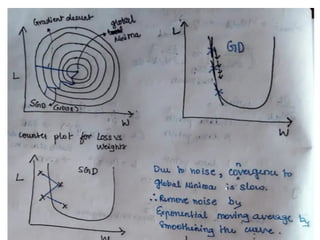 Gradient descent
global
Minima
L
SGD (NOISE)
W
Counter plot for Loss vs
Weights
L
GD
W
L
SGD
W
Due to noise, convergence to
global Minima is slow.
∴ Remove noise by
Exponential moving average by
Smoothing the curve.